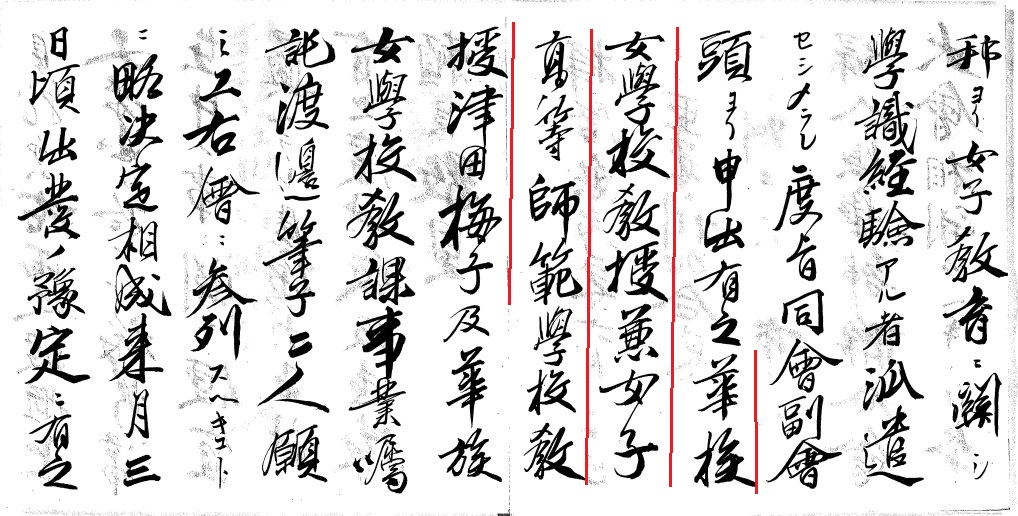 邦ヨリ女子教育ニ關シ
學識経驗アル者派遣
セシメラレ度旨同會副會
頭ヨリ申出有之華族
女學校教授兼女子
高等師範學校教
授津田梅子及華族
女學校教課事業嘱
託渡邊筆子二人願
ニ工右會ニ参列スヘキコト
ニ略決定相成来月三
日頃出発ノ豫定ニ有之